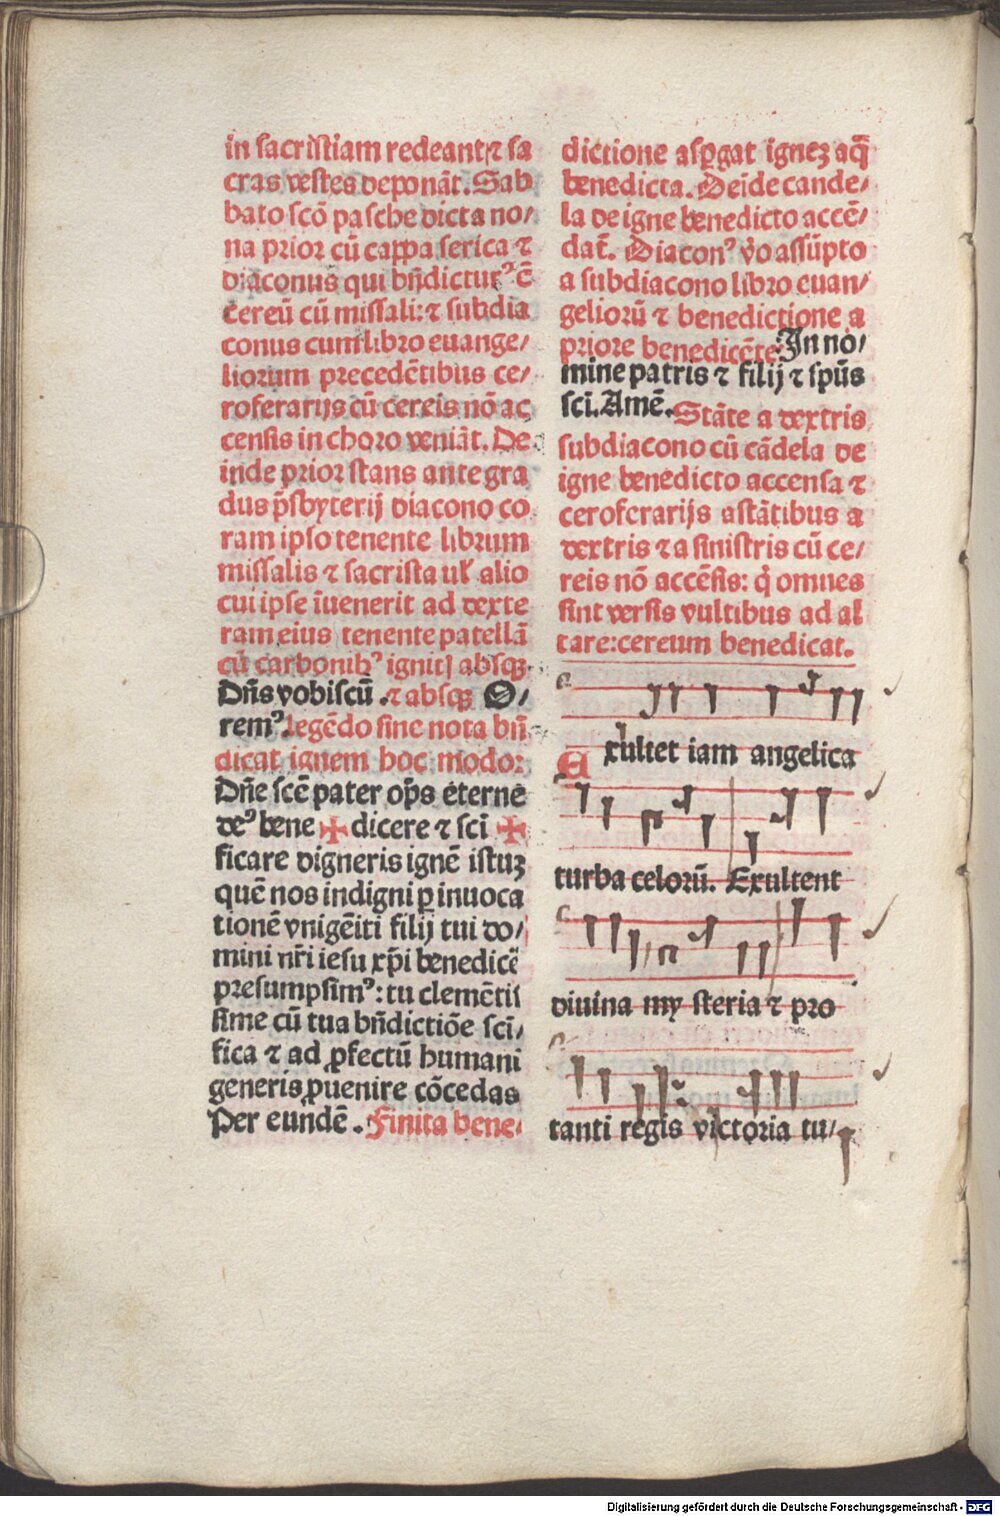 in sacristiam redeant ⁊ sa
cras vestes deponāt. Sab
bato scō pasche dicta no/
na prior cū cappa serica ⁊
diaconus qui bn̄dictur᾽ ē
cereū cū missali: ⁊ subdia
conus cum libro euange/
liorum precedētibus ce/
roferarijs cū cereis nō ac
censis in choro veniāt. De
inde prior stans ante gra
dus p̄sbyterij diacono co
ram ipso tenente librum
missalis ⁊ sacrista ul̓ alio
cui ipse īuenerit ad dexte
ram eius tenente patellā
cū carbonib᾽ ignitꝭ absqꝫ
Dn̄s vobiscū. ⁊ absqꝫ O/
rem᾽. legēdo sine nota bn̄
dicat ignem hoc modo:
Dn̄e scē pater op̄s eterne
de᾽ bene ✠ dicere ⁊ sci ✠
ficare digneris ignē istuꝫ
quē nos indigni ꝑ inuoca
tionē vnigēiti filij tui do/
mini nr̄i iesu xp̄i benedicē
presumpsim᾽: tu clemētis
sime cū tua bn̄dictiōe sci/
fica ⁊ ad ꝓfectū humani
generis ꝓuenire cōcedas
Per eundē. Finita bene/
dictione asꝑgat ignēꝫ aq̄
benedicta. Deīde cande/
la de igne benedicto accē/
dat̄. Diacon᾽ v̓o assūpto
a subdiacono libro euan/
geliorū ⁊ benedictione a
priore benedicēte: In no/
mine patris ⁊ filij ⁊ sp̄us
sci. Amē. Stāte a dextris
subdiacono cū cādela de
igne benedicto accensa ⁊
ceroferarijs astātibus a
dextris ⁊ a sinistris cū ce/
reis nō accēsis: q̓ omnes
sint versis vultibus ad al
tare: cereum benedicat.
Exultet iam angelica
turba celorū. Exultent
diuina my steria ⁊ pro
tanti regis victoria tu/
Digitalisierung gefördert durch die Deutsche Forschungsgemeinschaft - DFG